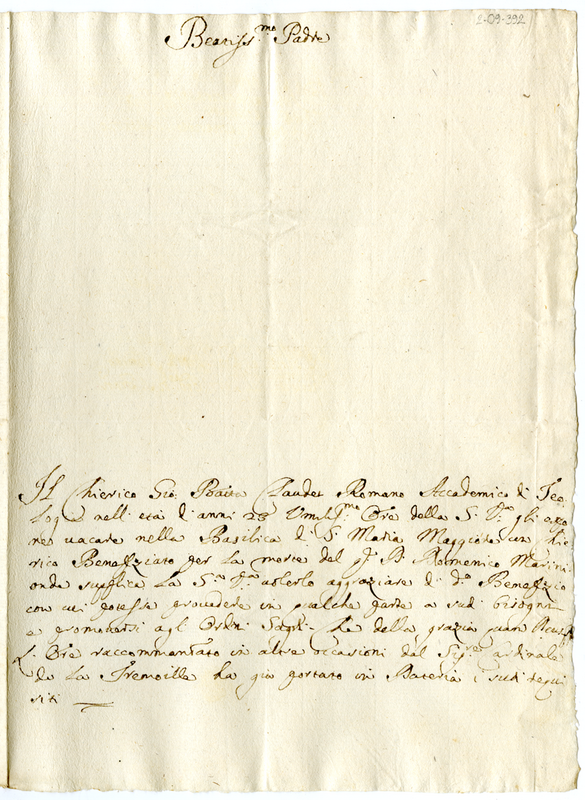 2-09-392
Beatiss.mo Padre
Il Chierico Gio: Batta Claudet Romano Accademico di Teo
logia nell' età d' anni 23 Um.o Ore della S. V.ra gli espo
ne vacare nella Basilica di S. Maria Maggiore un Chie
rico Beneffiziato per la morte del Domenico Marini
onde supplica la S.tà V.ra volerlo aggraziare di d.o Beneffizio
con cui potesse provedere in qualche parte a sudi bisogni
e promoversi agl' Ordini Sagri. Che della grazia
L' Ore raccommandato in altre occasioni dal Sig.re Cardinale
de La Tremoille ha già portato in Dateria i sudi requi
siti